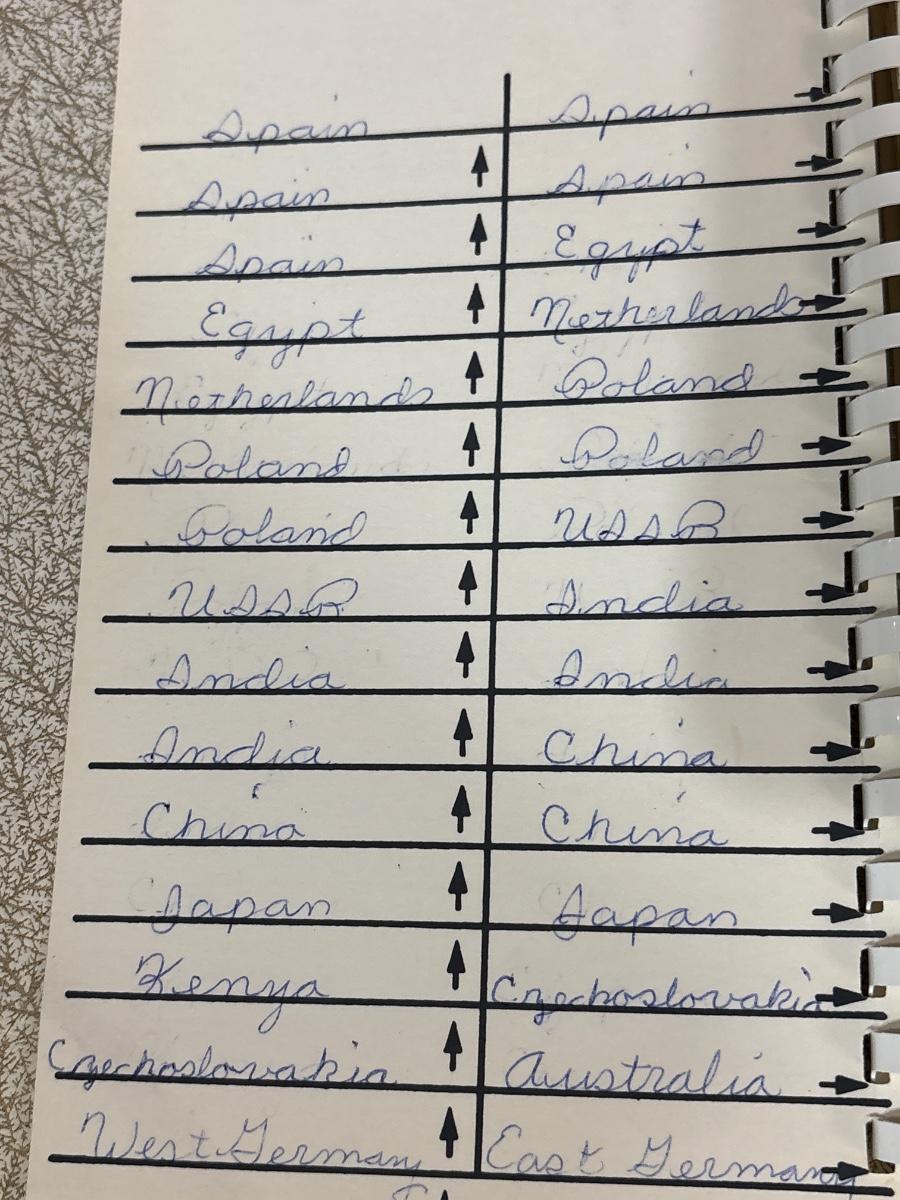 Spain Spain
Spain Spain
Spain Egypt
Egypt Netherlands
Netherlands Poland
Poland Poland
Poland USSR
USSR India
India India
India China
China China
Japan Japan
Kenya Czechoslovakia
Czechoslovakia Australia
West Germany East Germany